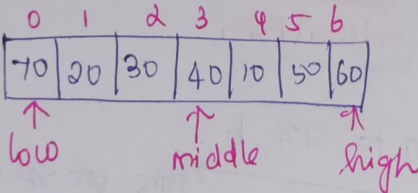 0 1 2 3 4 5 6
70 20 30 40 10 50 60
low middle high